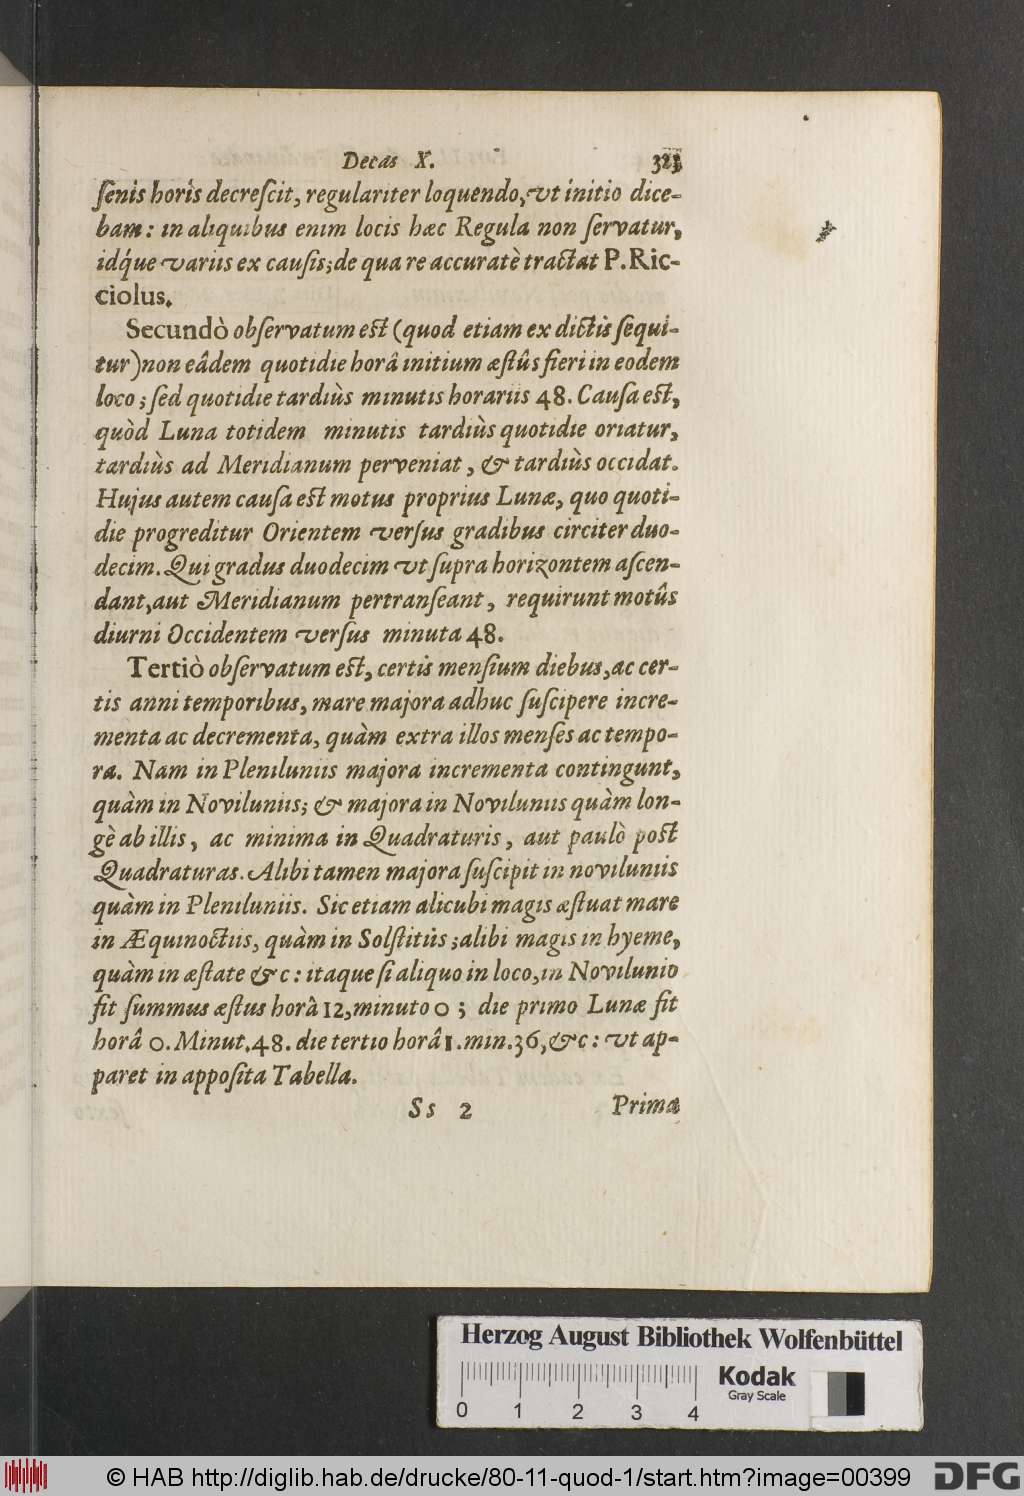 Decas X. 323
ſenis horis decreſcit, regulariter loquendo, ut initio dice-
bam: in aliquibus enim locis hæc Regula non ſervatur,
idq́ue variis ex cauſis; de qua re accuratè tractat P. Ric-
ciolus.
Secundò obſervatum eſt (quod etiam ex dictis ſequi-
tur) non eâdem quotidie horâ initium æſtûs fieri in eodem
loco; ſed quotidie tardiùs minutis horariis 48. Cauſa eſt,
quòd Luna totidem minutis tardiùs quotidie oriatur,
tardiùs ad Meridianum perveniat, & tardiùs occidat.
Hujus autem cauſa eſt motus proprius Lunæ, quo quoti-
die progreditur Orientem verſus gradibus circiter duo-
decim. Qui gradus duodecim ut ſupra horizontem aſcen-
dant, aut Meridianum pertranſeant, requirunt motûs
diurni Occidentem verſus minuta 48.
Tertiò obſervatum eſt, certis menſium diebus, ac cer-
tis anni temporibus, mare majora adhuc ſuſcipere incre-
menta ac decrementa, quàm extra illos menſes ac tempo-
ra. Nam in Pleniluniis majora incrementa contingunt,
quàm in Noviluniis; & majora in Noviluniis quàm lon-
gè ab illis, ac minima in Quadraturis, aut paulò poſt
Quadraturas. Alibi tamen majora ſuſcipit in noviluniis
quàm in Pleniluniis. Sic etiam alicubi magis æſtuat mare
in Æquinoctiis, quàm in Solſtitiis; alibi magis in hyeme,
quàm in æſtate &c: itaque ſi aliquo in loco, in Novilunio
fit ſummus æſtus horâ 12, minuto 0; die primo Lunæ fit
horâ 0. Minut. 48. die tertio horâ 1. min. 36, &c: ut ap-
paret in appoſita Tabella.
Ss 2 Prima
Herzog August Bibliothek Wolfenbüttel
Kodak
Gray Scale
0 1 2 3 4
© HAB http://diglib.hab.de/drucke/80-11-quod-1/start.htm?image=00399 DFG